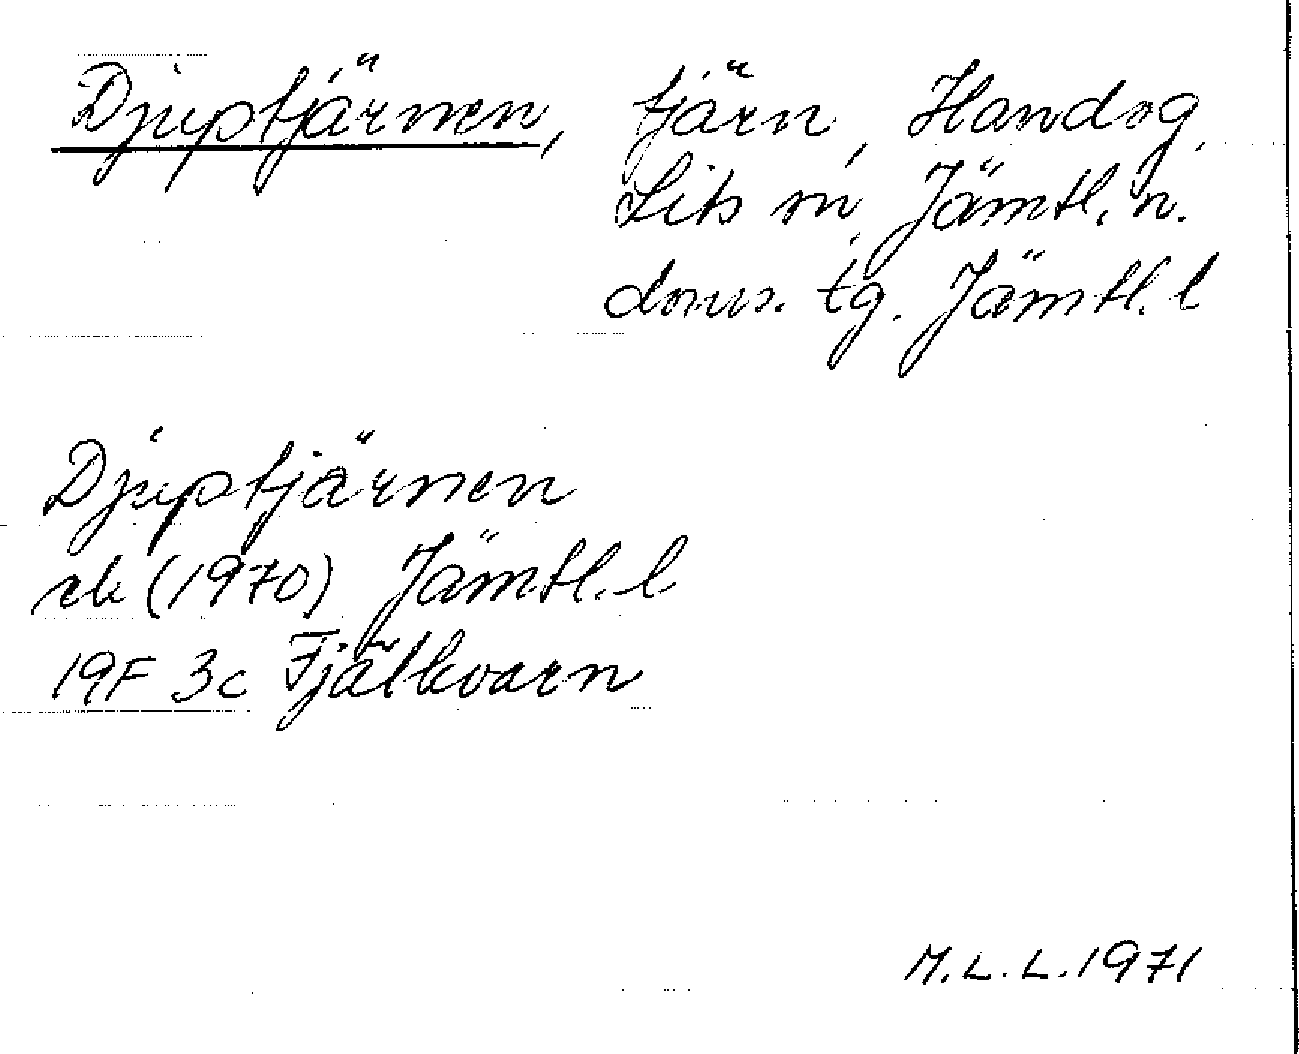 Djuptjärnen, tjärn, Handog,
Lits sn, Jämtl. n.
doms. tg. Jämtl. l
Djuptjärnen
ek (1970) Jämtl. l
19F 3c Fjälkvarn
M.L.L. 1971